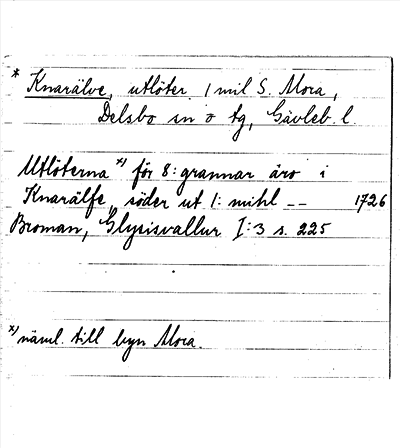 * Knarälve, utlöter. 1 mil S. Mora,
Delsbo sn o tg, Gävleb. l.
Utlöterna x) för 8: grannar äro i
Knarälfe, söder ut 1: mihl -- 1726
Broman, Glysisvallur I:3 s. 225
x) näml. till byn Mora.